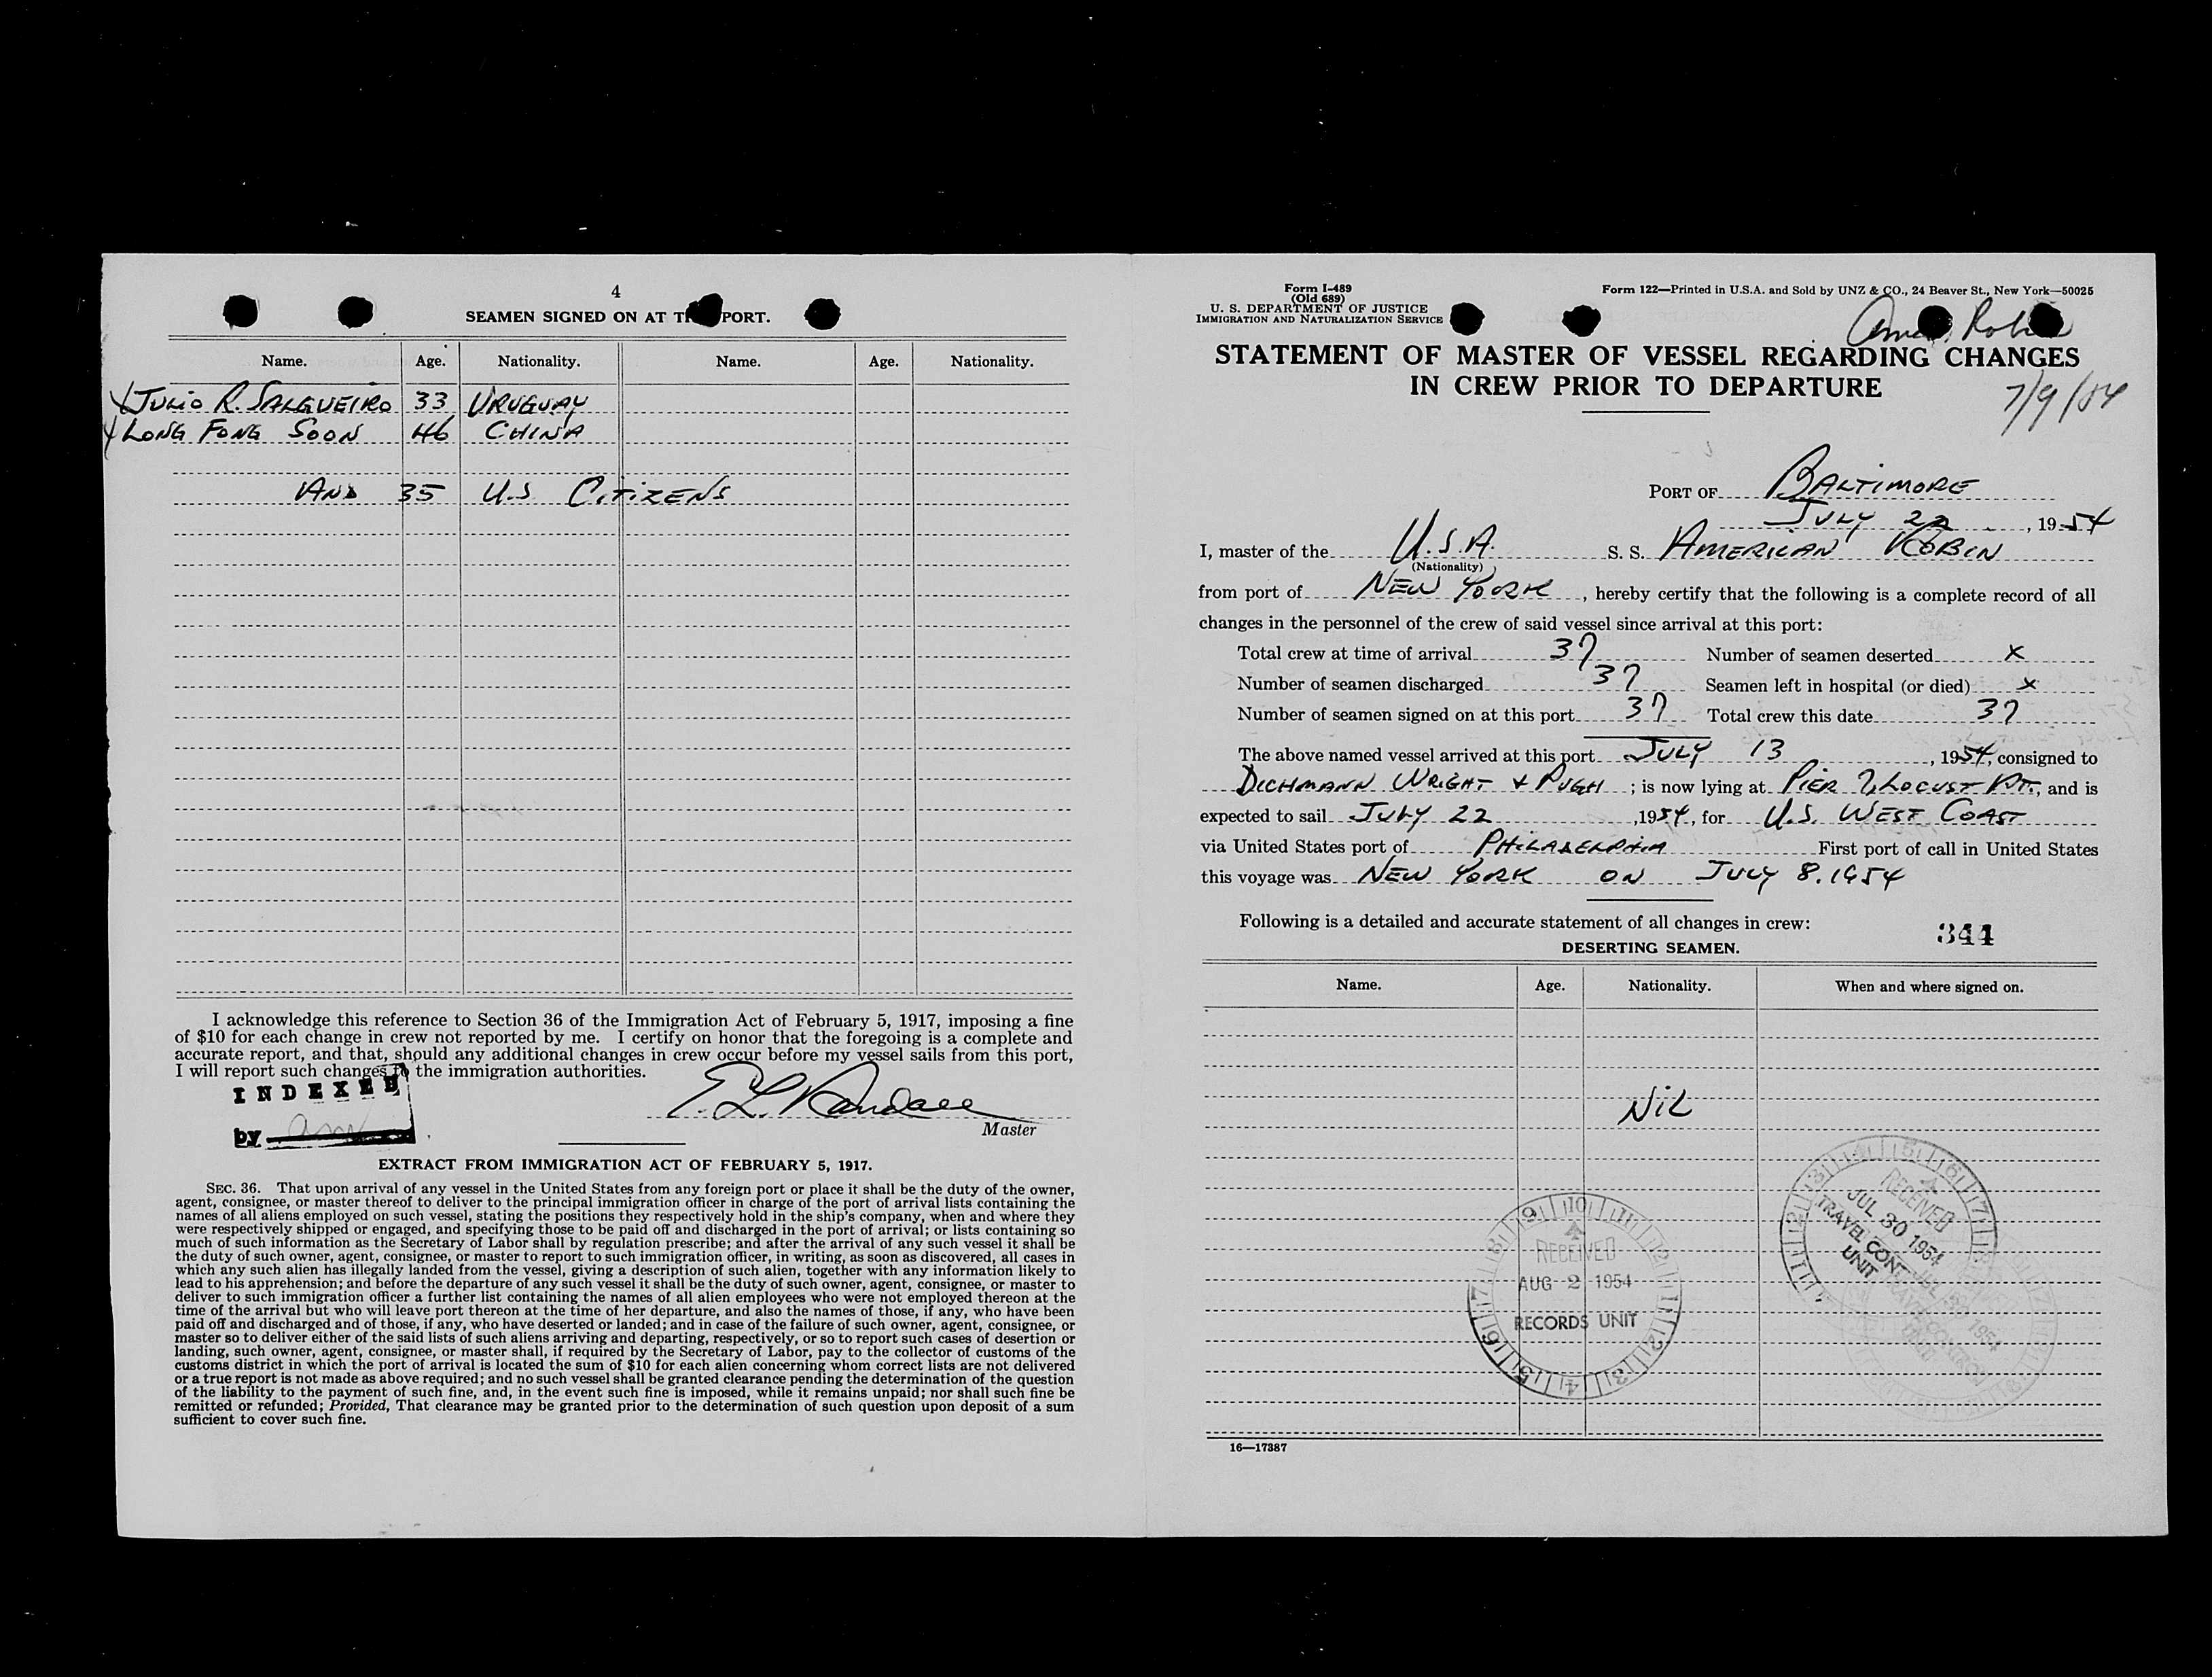 4
SEAMEN SIGNED ON AT PORT.
Name. Age. Nationality. Name. Age. Nationality.
JULIO R. SALGUEIRO 33 URUGUAY
LONG FONG SOON 46 CHINA
AND 35 U.S. CITIZENS
I acknowledge this reference to Section 36 of the Immigration Act of February 5, 1917, imposing a fine
of $10 for each change in crew not reported by me. I certify on honor that the foregoing is a complete and
accurate report, and that, should any additional changes in crew occur before my vessel sails from this port,
I will report such changes to the immigration authorities.
INDEXED
by
E. L. Randall
Master
EXTRACT FROM IMMIGRATION ACT OF FEBRUARY 5, 1917.
SEC. 36. That upon arrival of any vessel in the United States from any foreign port or place it shall be the duty of the owner,
agent, consignee, or master thereof to deliver to the principal immigration officer in charge of the port of arrival lists containing the
names of all aliens employed on such vessel, stating the positions they respectively hold in the ship's company, when and where they
were respectively shipped or engaged, and specifying those to be paid off and discharged in the port of arrival; or lists containing so
much of such information as the Secretary of Labor shall by regulation prescribe; and after the arrival of any such vessel it shall be
the duty of such owner, agent, consignee, or master to report to such immigration officer, in writing, as soon as discovered, all cases in
which any such alien has illegally landed from the vessel, giving a description of such alien, together with any information likely to
lead to his apprehension; and before the departure of any such vessel it shall be the duty of such owner, agent, consignee, or master to
deliver to such immigration officer a further list containing the names of all alien employees who were not employed thereon at the
time of the arrival but who will leave port thereon at the time of her departure, and also the names of those, if any, who have been
paid off and discharged and of those, if any, who have deserted or landed; and in case of the failure of such owner, agent, consignee, or
master so to deliver either of the said lists of such aliens arriving and departing, respectively, or so to report such cases of desertion or
landing, such owner, agent, consignee, or master shall, if required by the Secretary of Labor, pay to the collector of customs of the
customs district in which the port of arrival is located the sum of $10 for each alien concerning whom correct lists are not delivered
or a true report is not made as above required; and no such vessel shall be granted clearance pending the determination of the question
of the liability to the payment of such fine, and, in the event such fine is imposed, while it remains unpaid; nor shall such fine be
remitted or refunded; Provided, That clearance may be granted prior to the determination of such question upon deposit of a sum
sufficient to cover such fine.
Form I-489
(Old 689)
U. S. DEPARTMENT OF JUSTICE
IMMIGRATION AND NATURALIZATION SERVICE
Form 122—Printed in U.S.A. and Sold by UNZ & CO., 24 Beaver St., New York—50025
STATEMENT OF MASTER OF VESSEL REGARDING CHANGES
IN CREW PRIOR TO DEPARTURE
7/9/54
PORT OF BALTIMORE
JULY 22, 1954
I, master of the U.S.A. S. S. AMERICAN ROBIN
(Nationality)
from port of NEW YORK, hereby certify that the following is a complete record of all
changes in the personnel of the crew of said vessel since arrival at this port:
Total crew at time of arrival 37 Number of seamen deserted X
Number of seamen discharged 37 Seamen left in hospital (or died) X
Number of seamen signed on at this port 37 Total crew this date 37
The above named vessel arrived at this port JULY 13, 1954, consigned to
DICHMANN WRIGHT & PUGH; is now lying at PIER 7, LOCUST PT., and is
expected to sail JULY 22, 1954, for U.S. WEST COAST
via United States port of PHILADELPHIA First port of call in United States
this voyage was NEW YORK ON JULY 8. 1954
Following is a detailed and accurate statement of all changes in crew:
344
DESERTING SEAMEN.
Name. Age. Nationality. When and where signed on.
NIL
RECEIVED
JUL 30 1954
TRAVEL CONT
UNIT
RECEIVED
AUG 2 1954
RECORDS UNIT
16—17387